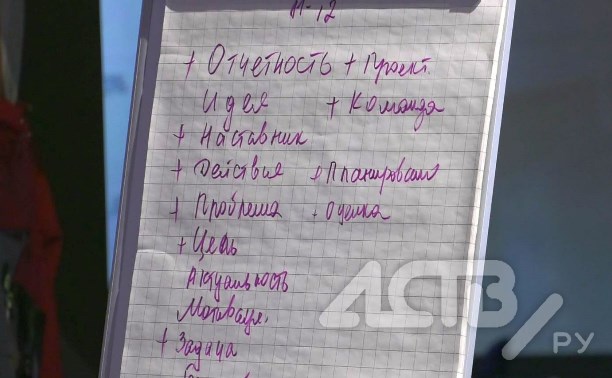 + Отчетность + Проект
Идея + Команда
+ Наставник
+ Действия + Планирован
+ Проблема + Оценка
+ Цель
Актуальность
Мотивация
+ Задача
АСТВ.РУ